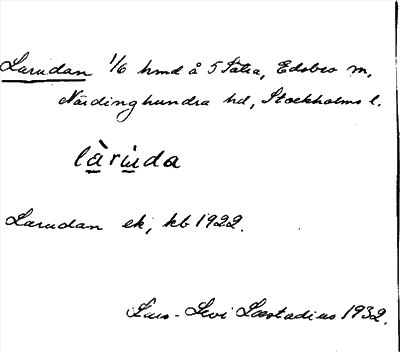 Larudan 1/6 hmd å 5 Sätra, Edsbro sn,
Närdinghundra hd, Stockholms l.
làru̇da
Larudan ek, kb 1922.
Lars-Levi Læstadius 1932.